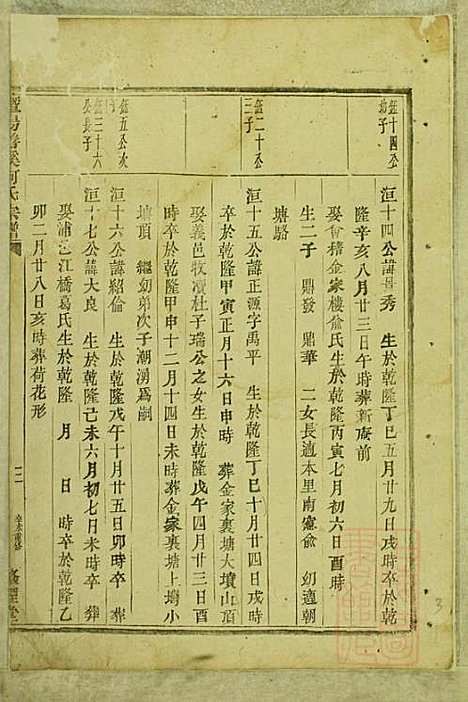 鉦十四公
幼子
洹十四公諱壬秀 生於乾隆丁巳五月廿九日戌時卒於乾
隆辛亥八月廿三日午時葬新庵前
娶會稽金家樓俞氏生於乾隆丙寅七月初六日酉時
生二子 鼎發 鼎華 二女長適本里南憲俞 幼適朝
塘駱
鉦二十公
三子
洹十五公諱正源字萬平 生於乾隆丁巳十月廿四日戌時
卒於乾隆甲寅正月十六日申時 葬金家裏塘大墳山頂
娶義邑牧瀆杜子瑞公之女生於乾隆戊午四月廿三日酉
時卒於乾隆甲申十二月十四日未時葬金家裏塘上塆小
塘頂 繼幼弟次子潮湧爲嗣
鉦五公次
子
洹十六公諱紹倫 生於乾隆戊午十月廿五日卯時卒 葬
鉦三十六
公長子
洹十七公諱大良 生於乾隆己未六月初七日未時卒 葬
娶浦邑江橋葛氏生於乾隆 月 日 時卒於乾隆乙
卯二月廿八日亥時葬荷花形
暨陽 溪何氏宗譜
二
辛未重修